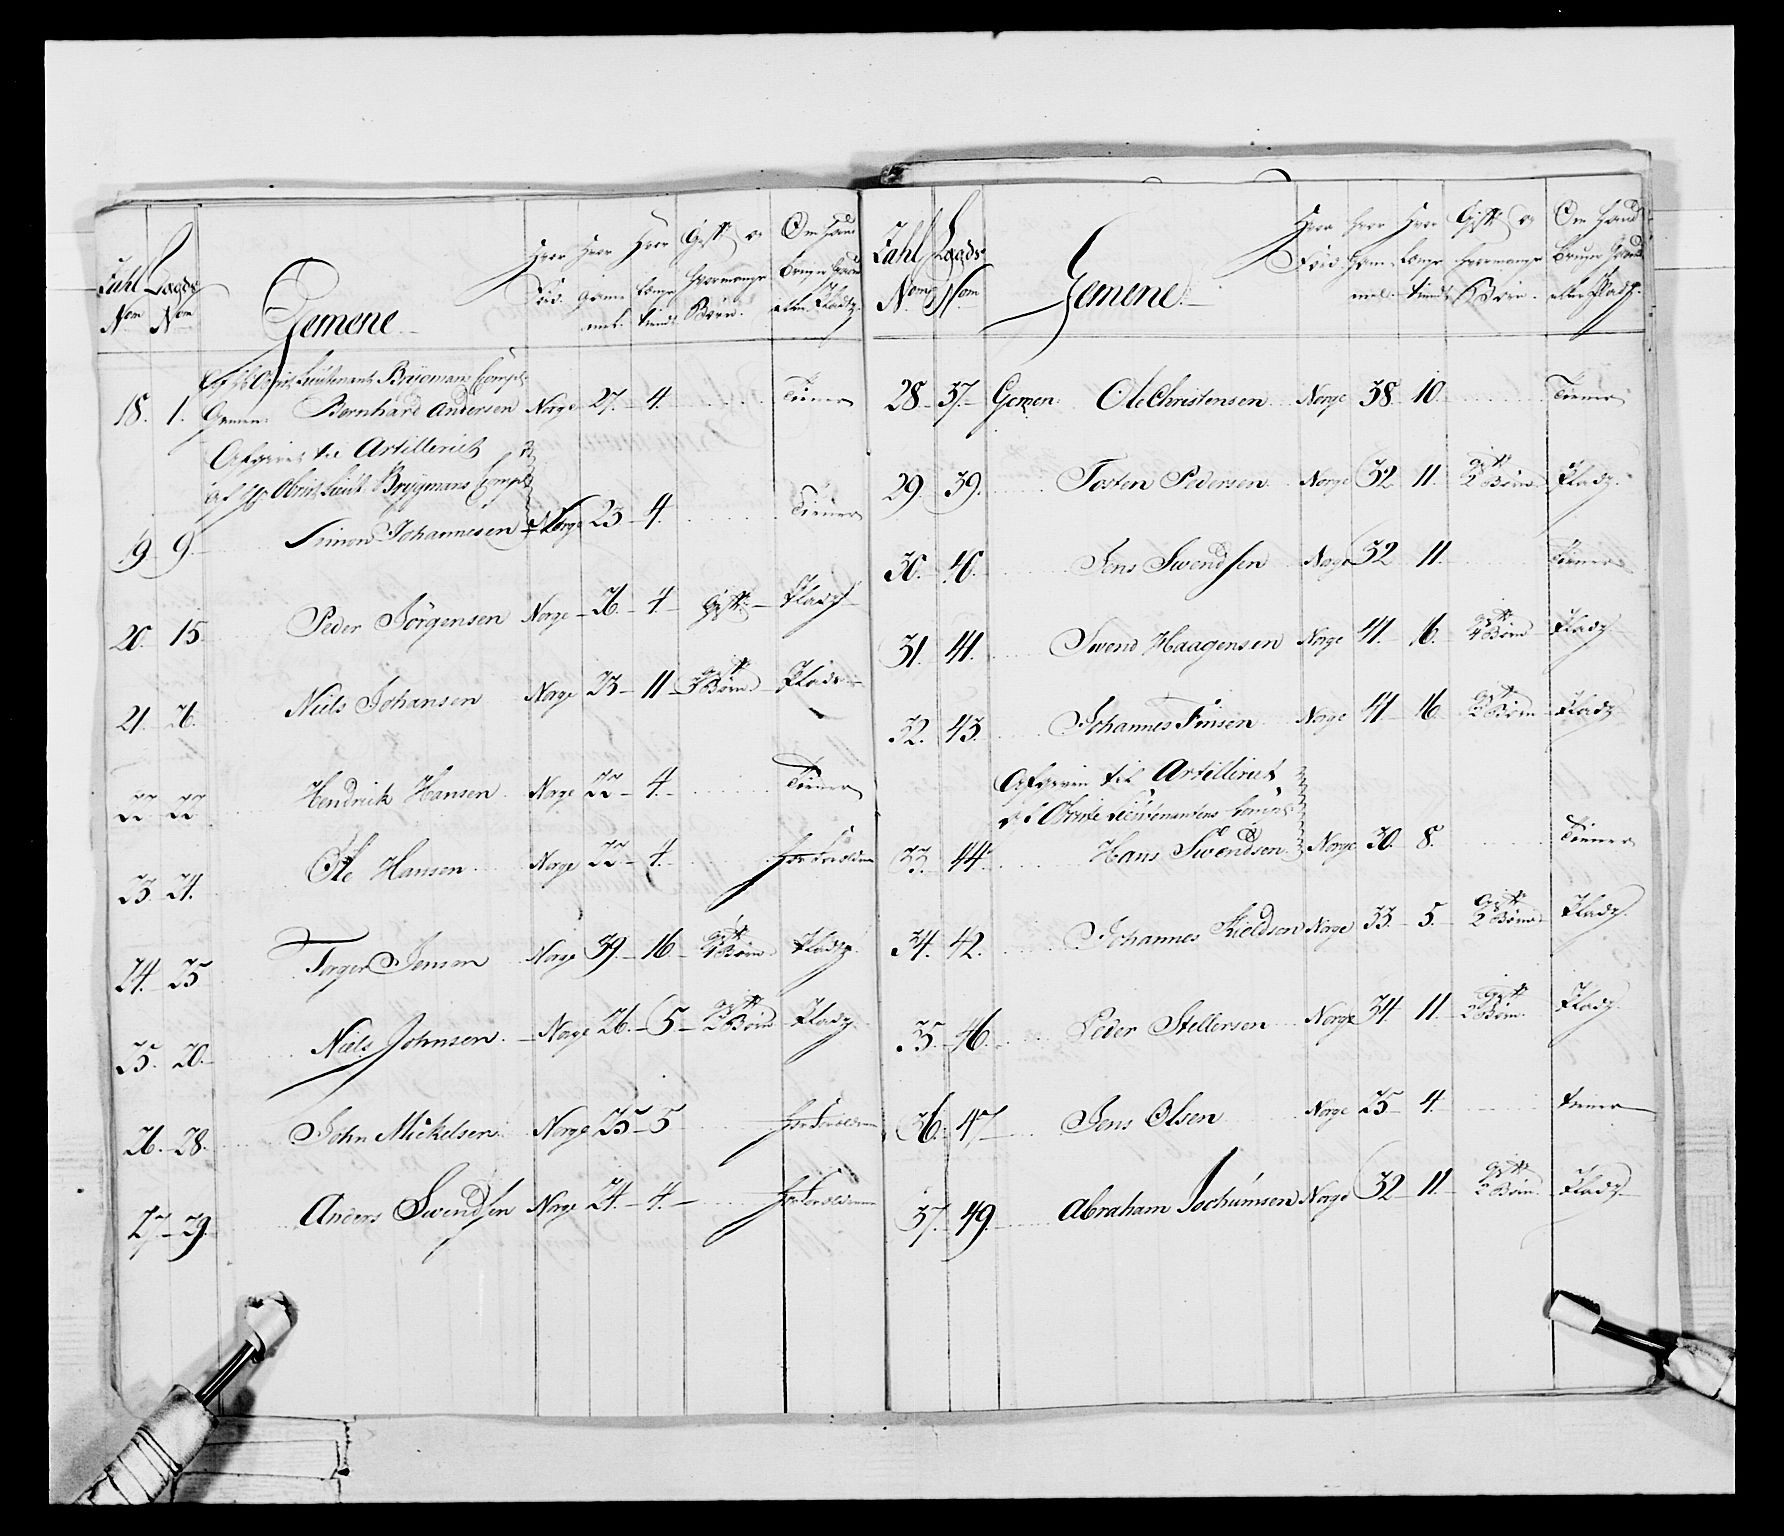 Zahl Nom Lagds Nom Gemene Hvor Fød. Hvor Gam- mel. Hvor Længe tient Gift og Hvormange Børn. Om Hand Bruger Gaard eller Pladz.
Af Hr Obrist Lieutenant Brygmans Comp:
18. 1. Gemen: Bernhard Andersen Norge 27. 4. Tiener
Afgaaet til Artilleriet
af Hr Obrist Lieut: Brygmans Comp:
19 9. Simon Johannesen Norge 23 4. Tiener
20. 15. Peder Jörgensen Norge 26. 4. Gift Pladz
21. 26. Niels Johansen Norge 33 11 Gift 3 Børn Pladz
22 22 Hendrich Hansen Norge 22 4. Tiener
23 24. Ole Hansen Norge 22 4. hos Forældrene
24. 25 Torger Jensen Norge 39. 16 Gift 4 Børn Pladz
25. 20. Niels Johnsen Norge 26. 5 Gift 2 Børn Pladz
26. 28. John Mickelsen Norge 25 5 hos Forældrene
27 29. Anders Swendsen Norge 24. 4. hos Forældrene
Zahl Nom Lagds Nom Gemene Hvor Fød Hvor Gam- mel. Hvor Længe tient Gift og Hvormange Børn. Om Hand Bruger Gaard eller Pladz.
28. 37. Gemen Ole Christensen Norge 38. 10. Tiener
29. 39. Tosten Pedersen Norge 32 11. Gift 2 Børn Pladz.
30. 40. Jens Swendsen Norge 32 11. Tiener
31. 41. Swend Haagensen Norge 41. 16. Gift 4 Børn Pladz
32. 43. Johannes Finsen Norge 41 16 Gift 2 Børn Pladz
Afgaaen til Artilleriet
af Obriste Lieutenantens Comp:
33. 44. Hans Swendsen Norge 30. 8. Tiener
34. 42. Johannes Kieldsen Norge 33. 5. Gift 2 Børn Pladz.
35. 46. Peder Stellersen Norge 34. 11. Gift 2 Børn Pladz
36. 47 Jens Olsen Norge 25 4. tiener
37. 49. Abraham Jochumsen Norge 32 11. Gift 2 Børn Pladz